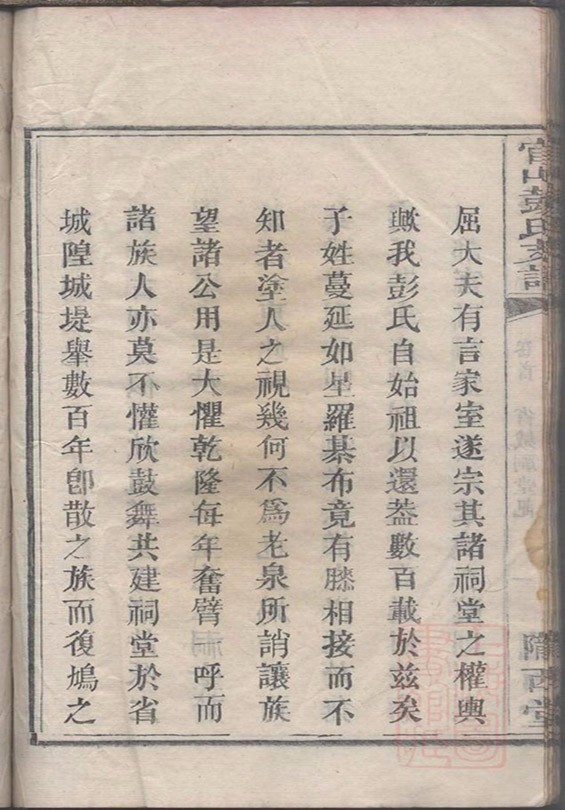 官山彭氏支譜
卷首
省城祠堂記
隴西堂
屈大夫有言家室遂宗其諸祠堂之權輿
歟我彭氏自始祖以還葢數百載於兹矣
子姓蔓延如星羅棊布竟有滕相接而不
知者塗人之視幾何不爲老泉所誚讓族
望諸公用是大懼乾隆每年奮臂一呼而
諸族人亦莫不懽欣鼓舞共建祠堂於省
城隍城堤舉數百年卽散之族而復鳩之